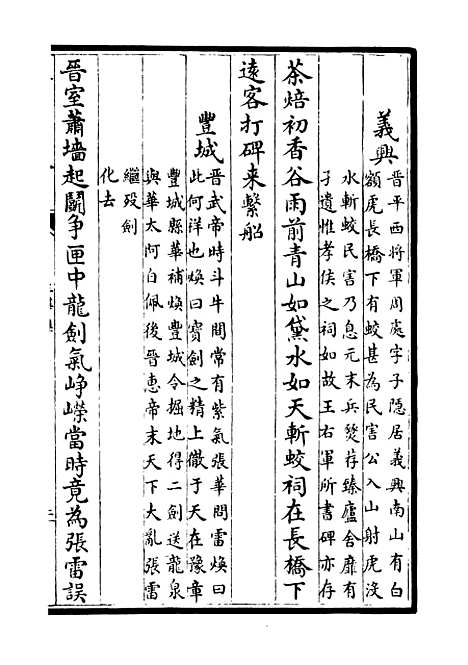 義興
晉平西將軍周處字子隱居義興南山有白
額虎長橋下有蛟甚為民害公入山射虎沒
水斬蛟民害乃息元末兵燹荐臻廬舍靡有
孑遺惟孝侯之祠如故王右軍所書碑亦存
茶焙初香谷雨前青山如黛水如天斬蛟祠在長橋下
遠客打碑来繫船
豐城
晉武帝時斗牛間常有紫氣張華問雷煥曰
此何祥也煥曰寶劍之精上徹于天在豫章
豐城縣華補煥豐城令掘地得二劍送龍泉
與華太阿白佩後晉惠帝末天下大亂張雷
繼歿劍
化去
晉室蕭墻起鬭争匣中龍劍氣崢嶸當時竟為張雷誤